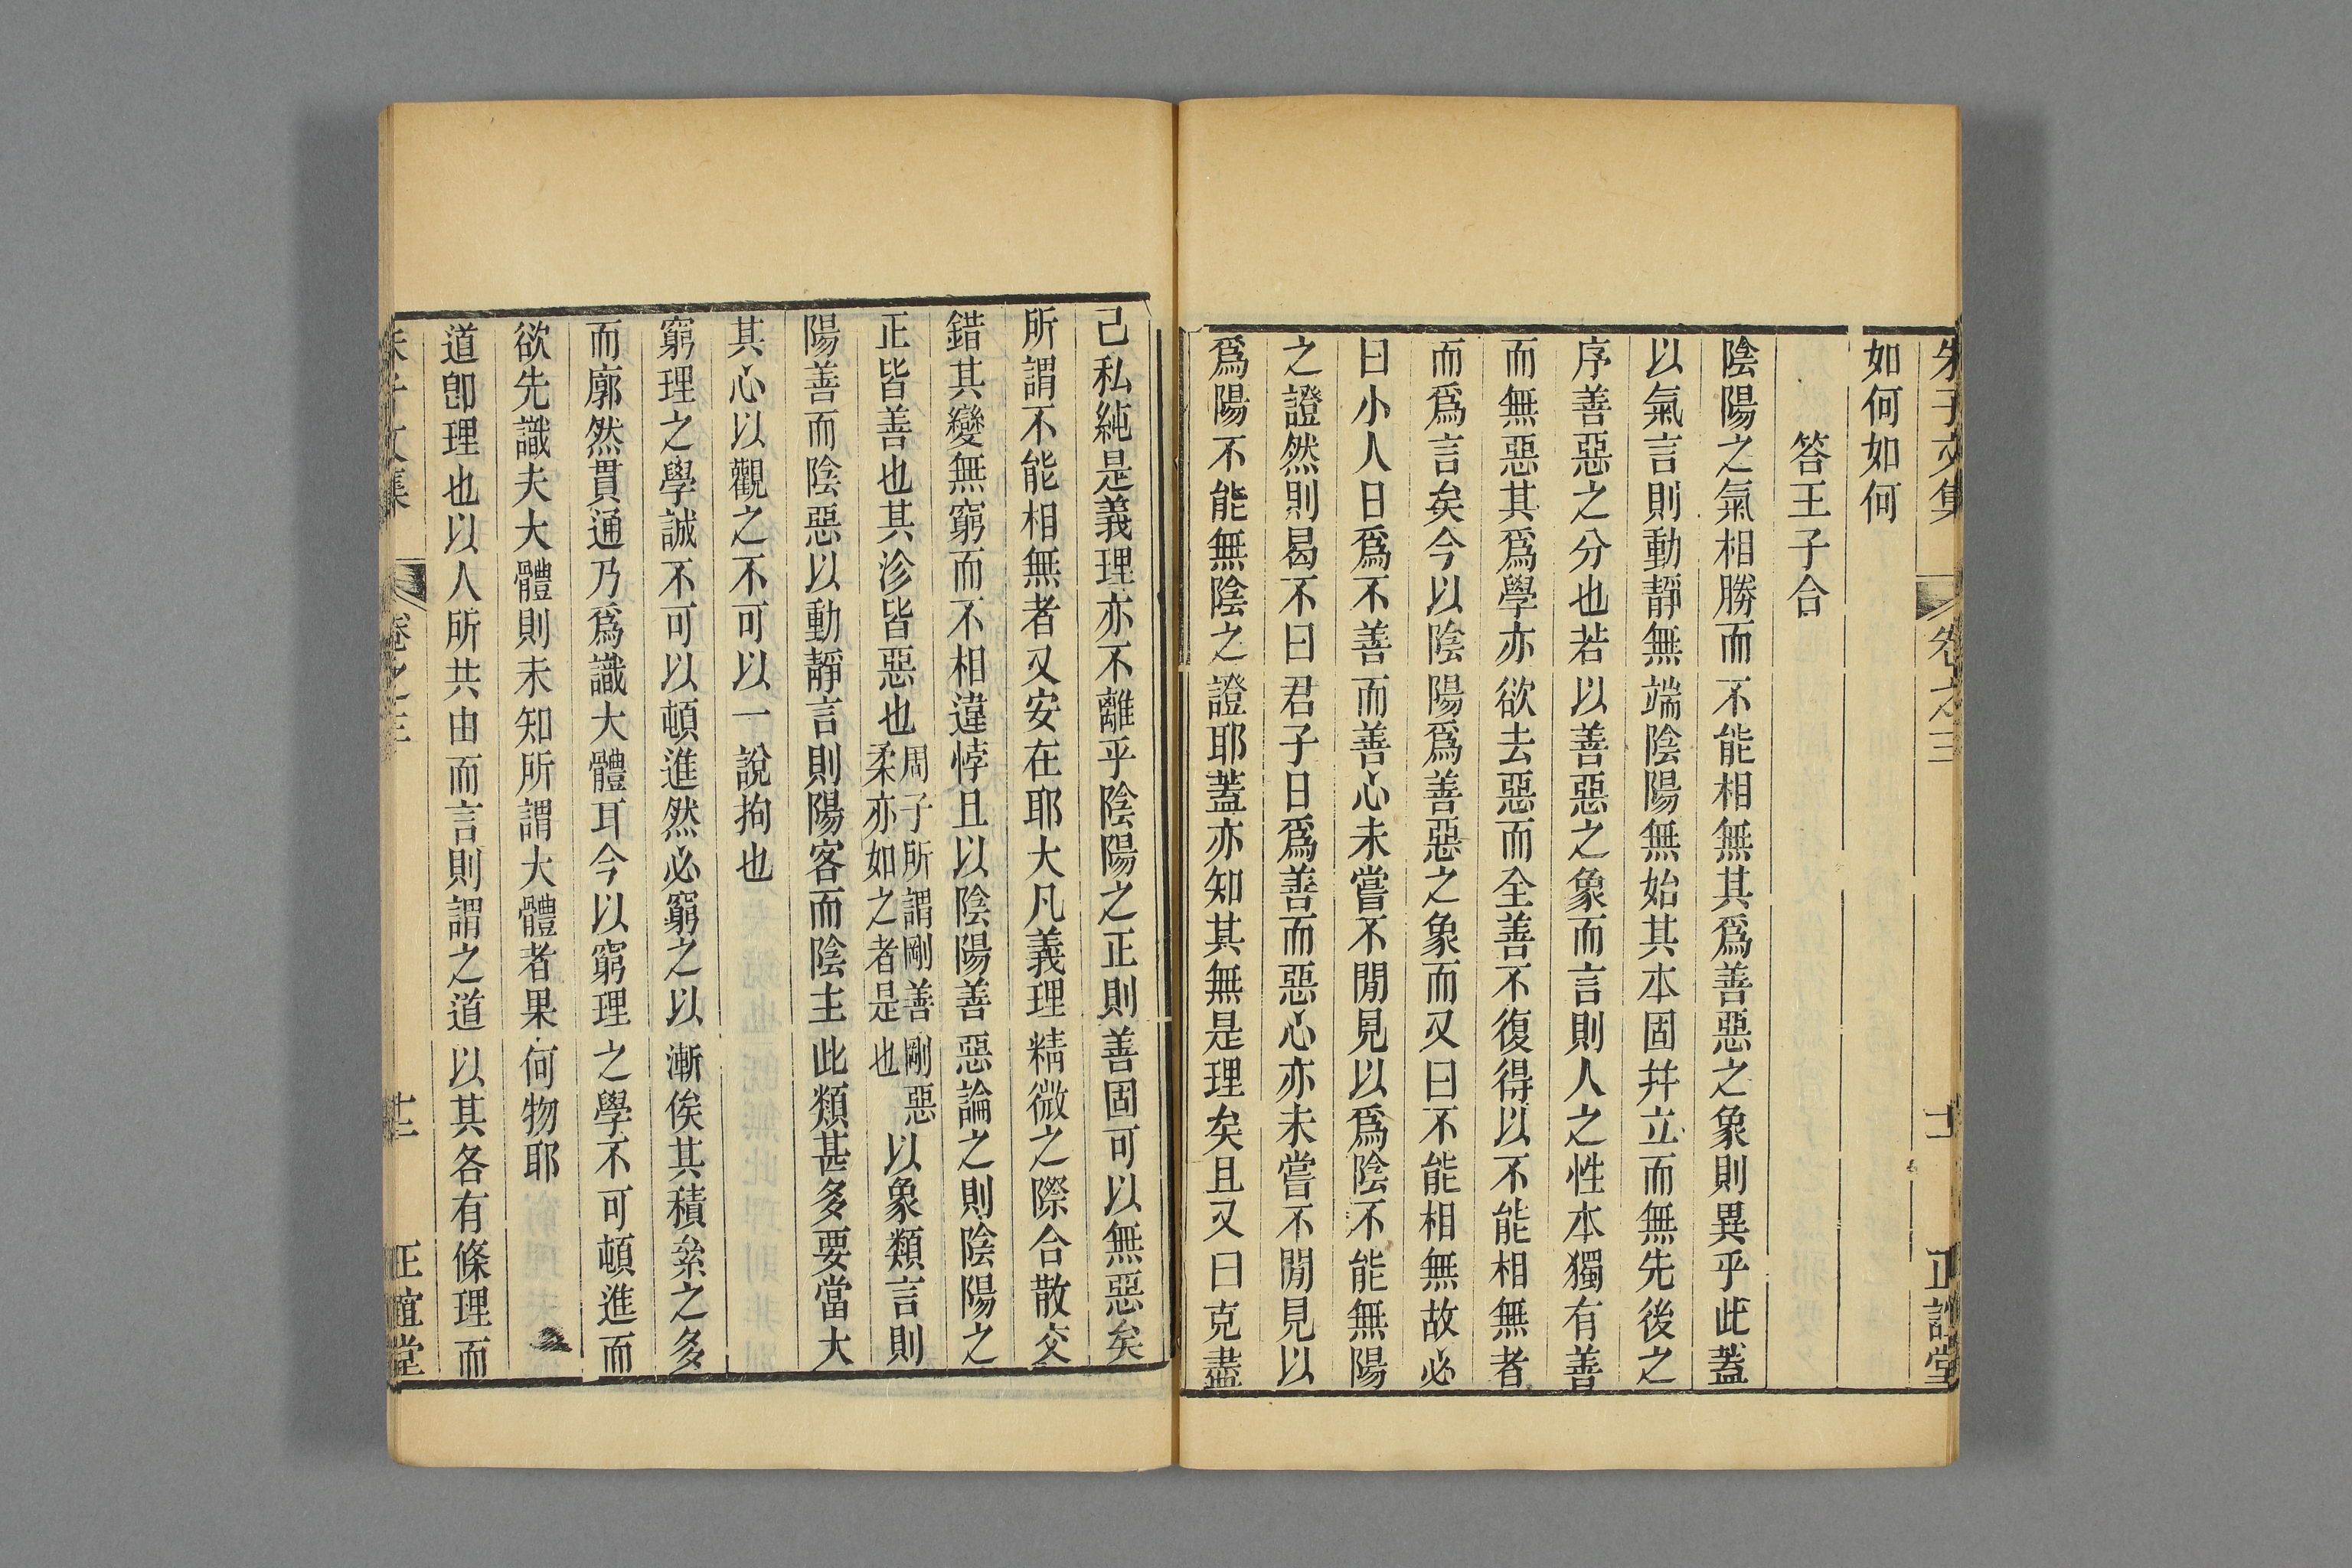 朱子文集 卷之三 十一 正誼堂
如何如何
答王子合
陰陽之氣相勝而不能相無其爲善惡之象則異乎此蓋
以氣言則動靜無端陰陽無始其本固幷立而無先後之
序善惡之分也若以善惡之象而言則人之性本獨有善
而無惡其爲學亦欲去惡而全善不復得以不能相無者
而爲言矣今以陰陽爲善惡之象而又曰不能相無故必
曰小人日爲不善而善心未嘗不閒見以爲陰不能無陽
之證然則曷不曰君子日爲善而惡心亦未嘗不閒見以
爲陽不能無陰之證耶蓋亦知其無是理矣且又曰克盡
己私純是義理亦不離乎陰陽之正則善固可以無惡矣
所謂不能相無者又安在耶大凡義理精微之際合散交
錯其變無窮而不相違悖且以陰陽善惡論之則陰陽之
正皆善也其沴皆惡也周子所謂剛善剛惡柔亦如之者是也以象類言則
陽善而陰惡以動靜言則陽客而陰主此類甚多要當大
其心以觀之不可以一說拘也
窮理之學誠不可以頓進然必窮之以漸俟其積絫之多
而廓然貫通乃爲識大體耳今以窮理之學不可頓進而
欲先識夫大體則未知所謂大體者果何物耶
道卽理也以人所共由而言則謂之道以其各有條理而
朱子文集 卷之三 十二 正誼堂